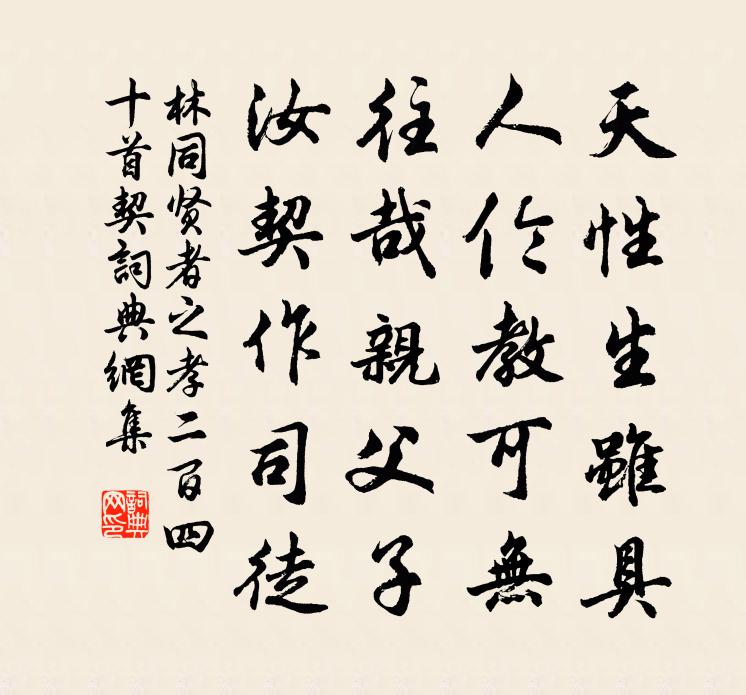 天性生雖具
人伦教可無
往哉親父子
汝契作司徒
林同贤者之孝二百四
十首契詞典網集
詞典
网印